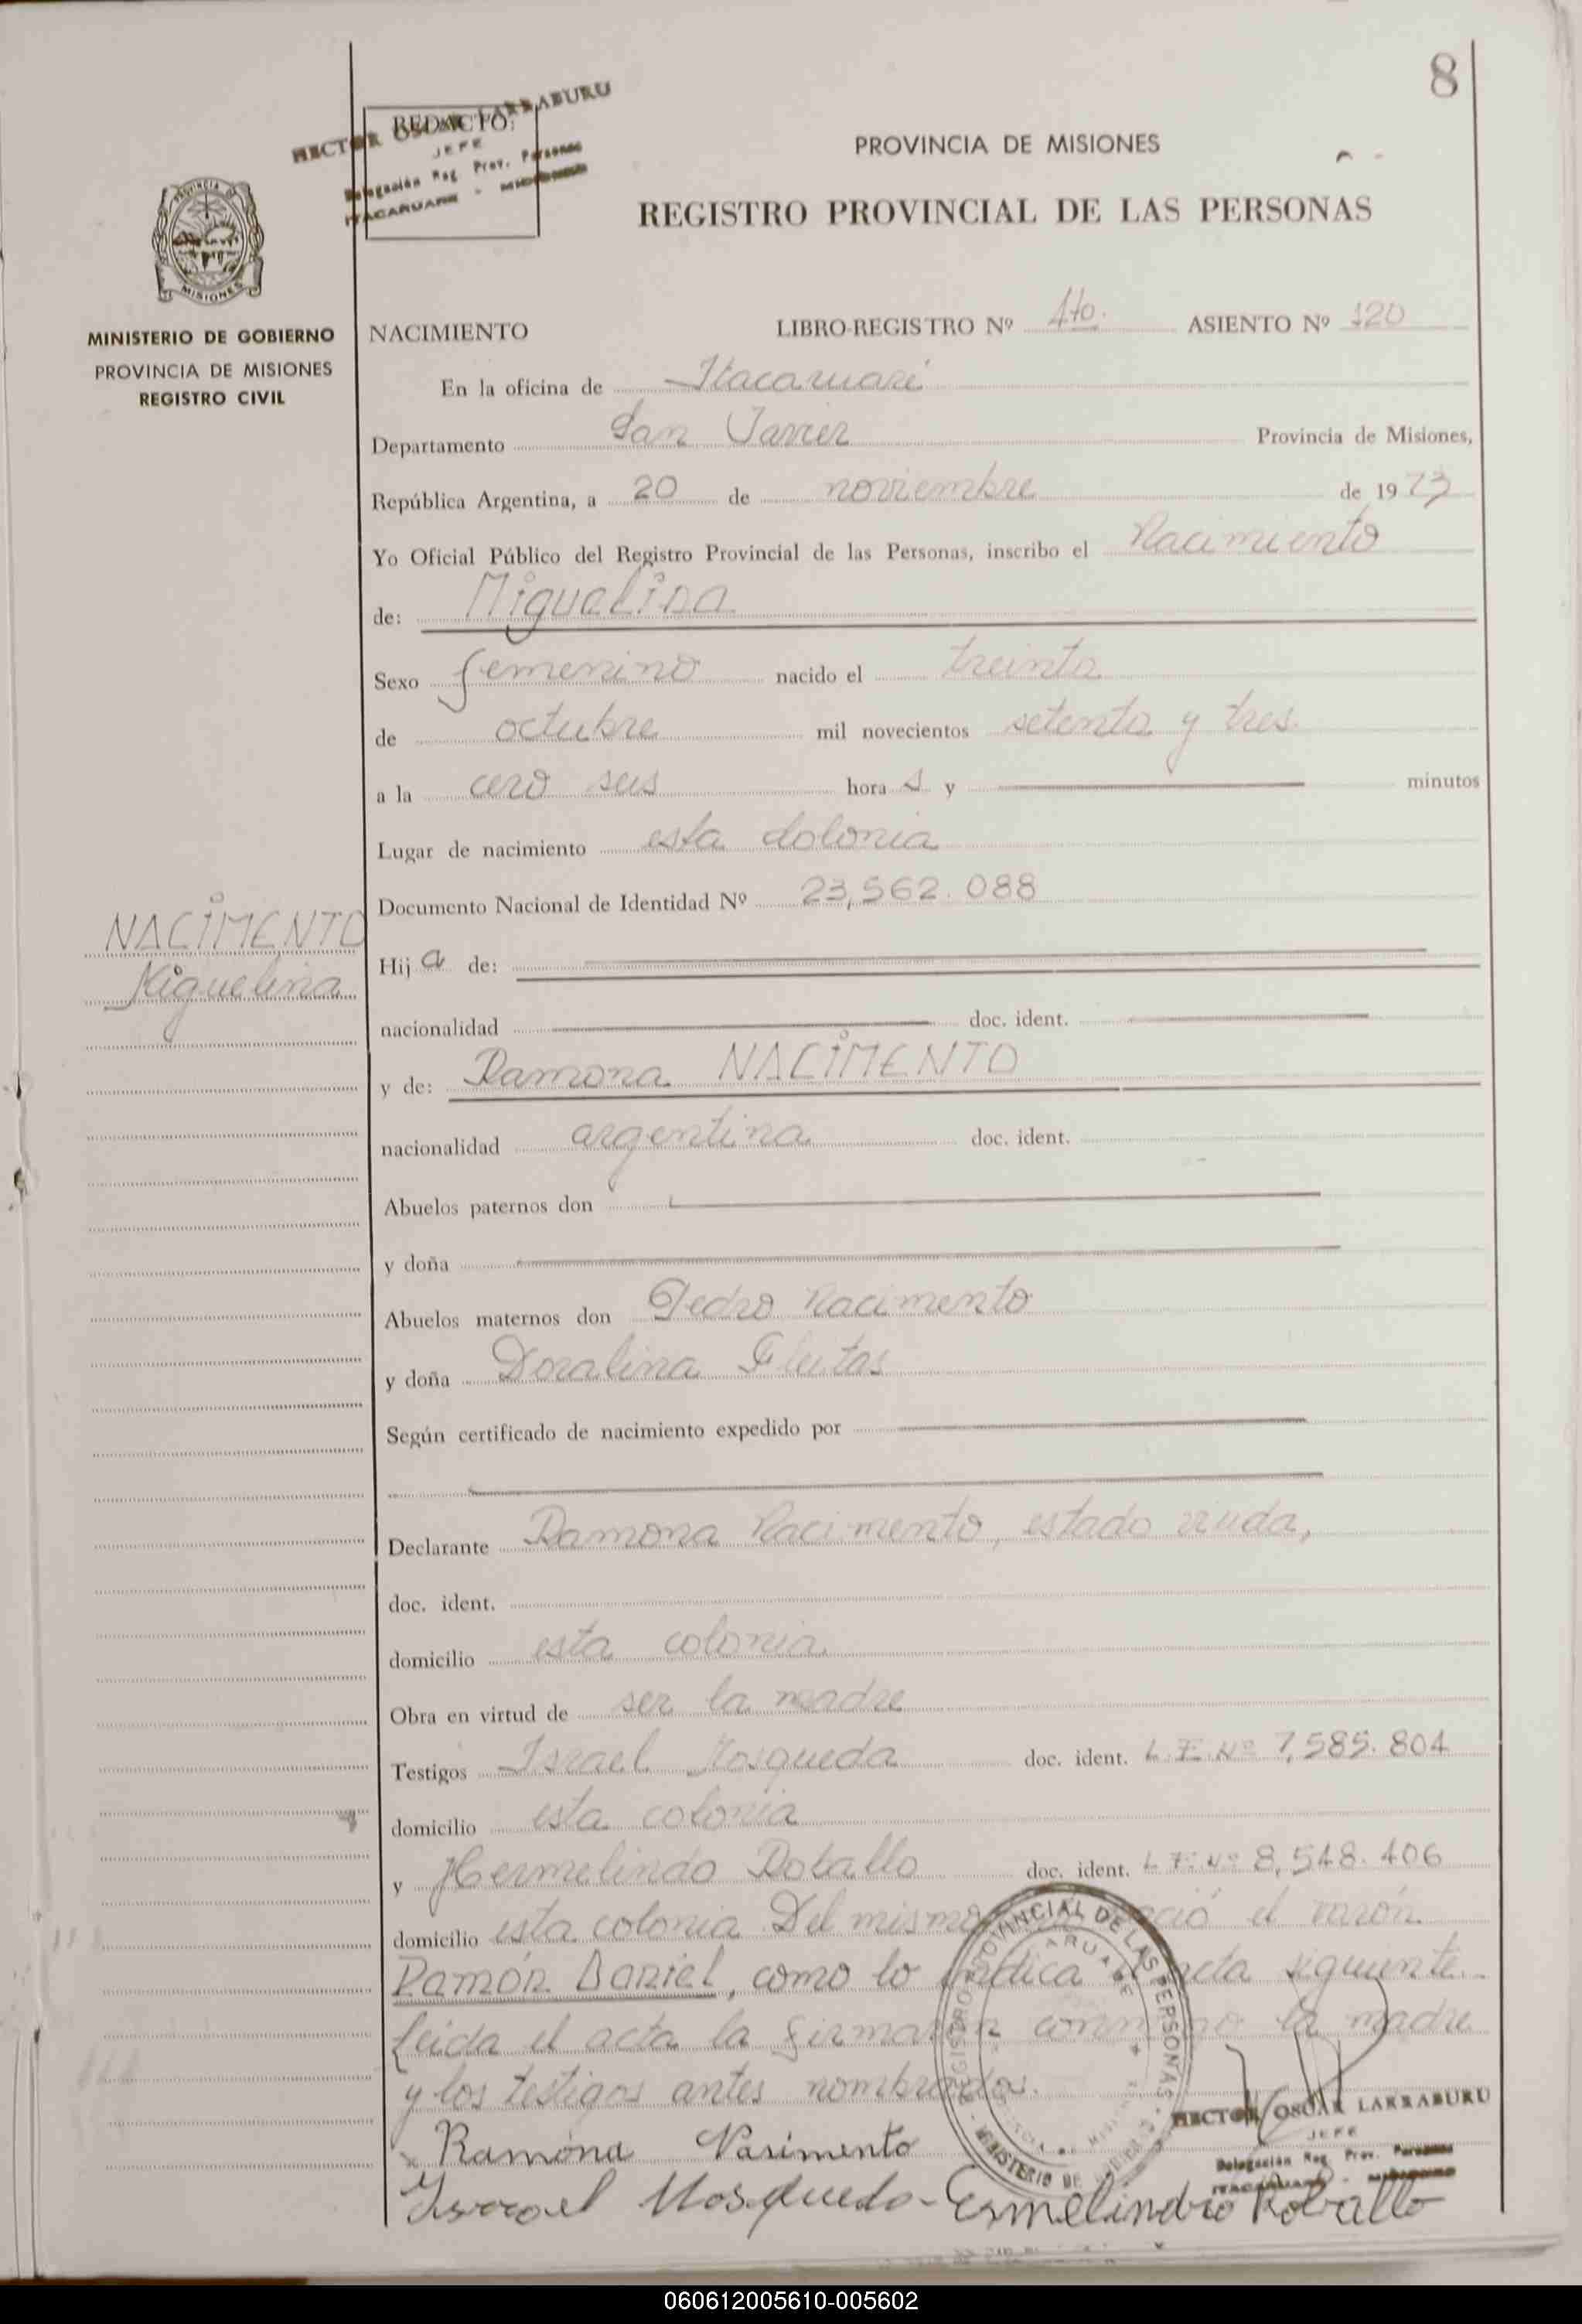 8
HECTOR OSCAR LARRABURU
REDACTO:
JEFE
Delegación Reg. Prov. Personas
ITACARUARE - MISIONES
PROVINCIA DE MISIONES
REGISTRO PROVINCIAL DE LAS PERSONAS
MISIONES
MINISTERIO DE GOBIERNO
PROVINCIA DE MISIONES
REGISTRO CIVIL
NACIMIENTO LIBRO-REGISTRO Nº 4to. ASIENTO Nº 120
En la oficina de Itacaruaré
Departamento San Javier Provincia de Misiones,
República Argentina, a 20 de noviembre de 1973
Yo Oficial Público del Registro Provincial de las Personas, inscribo el Nacimiento
de: Miguelina
Sexo femenino nacido el treinta
de octubre mil novecientos setenta y tres.
a la cero seis hora s y minutos
Lugar de nacimiento esta colonia
Documento Nacional de Identidad Nº 23,562.088
NACIMENTO
Miguelina
Hij a de:
nacionalidad doc. ident.
y de: Ramona NACIMENTO
nacionalidad argentina doc. ident.
Abuelos paternos don
y doña
Abuelos maternos don Pedro Nacimento
y doña Doralina Fleitas
Según certificado de nacimiento expedido por
Declarante Ramona Nacimento, estado viuda,
doc. ident.
domicilio esta colonia
Obra en virtud de ser la madre
Testigos Israel Mosqueda doc. ident. L.E. Nº 7,585.804
domicilio esta colonia
y Hermelindo Roballo doc. ident. L.E. Nº 8,548.406
domicilio esta colonia Del mismo nació el varón
Ramón Daniel, como lo indica acta siguiente.
leida el acta la firmaron conmigo la madre
y los testigos antes nombrados.
REGISTRO PROVINCIAL DE LAS PERSONAS
HECTOR OSCAR LARRABURU
JEFE
Delegación Reg. Prov. Personas
ITACARUARE - MISIONES
Ramona Nasimento
Isrrael Mosqueda - Ermelindro Roballo
060612005610-005602